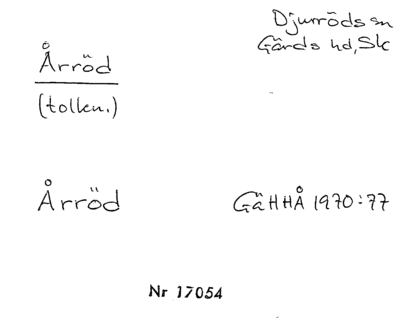 Årröd
Djurröds sn
Gärds hd, Sk
(tolkn.)
Årröd
GäHHÅ 1970:77
Nr 17054